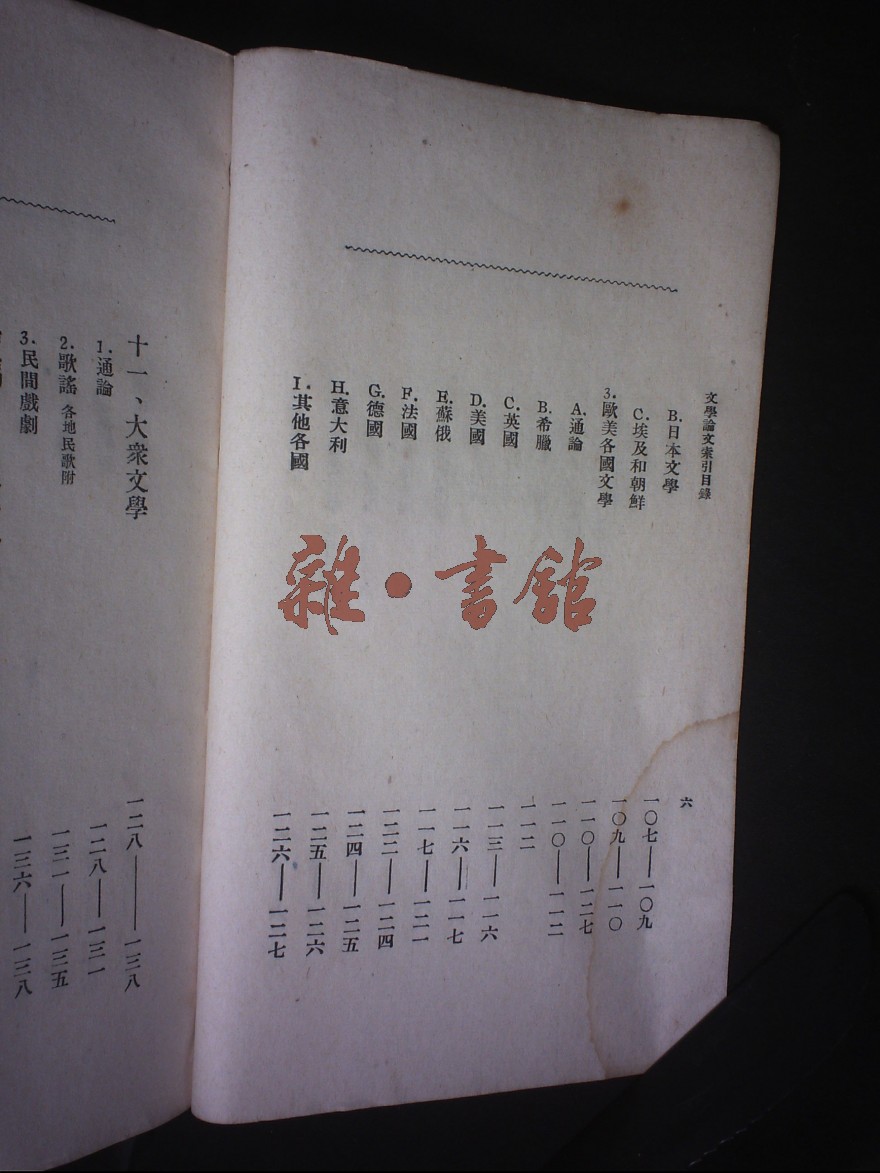 文學論文索引目錄 六
B.日本文學 一〇七——一〇九
C.埃及和朝鮮 一〇九——一一〇
3.歐美各國文學 一一〇——一二七
A.通論 一一〇——一一二
B.希臘 一一二
C.英國 一一三——一一六
D.美國 一一六——一一七
E.蘇俄 一一七——一二一
F.法國 一二二——一二四
G.德國 一二四——一二五
H.意大利 一二五——一二六
I.其他各國 一二六——一二七
雜•書館
十一、大衆文學 一二八——一三八
1.通論 一二八——一三一
2.歌謠 各地民歌附 一三一——一三五
3.民間戲劇 一三六——一三八